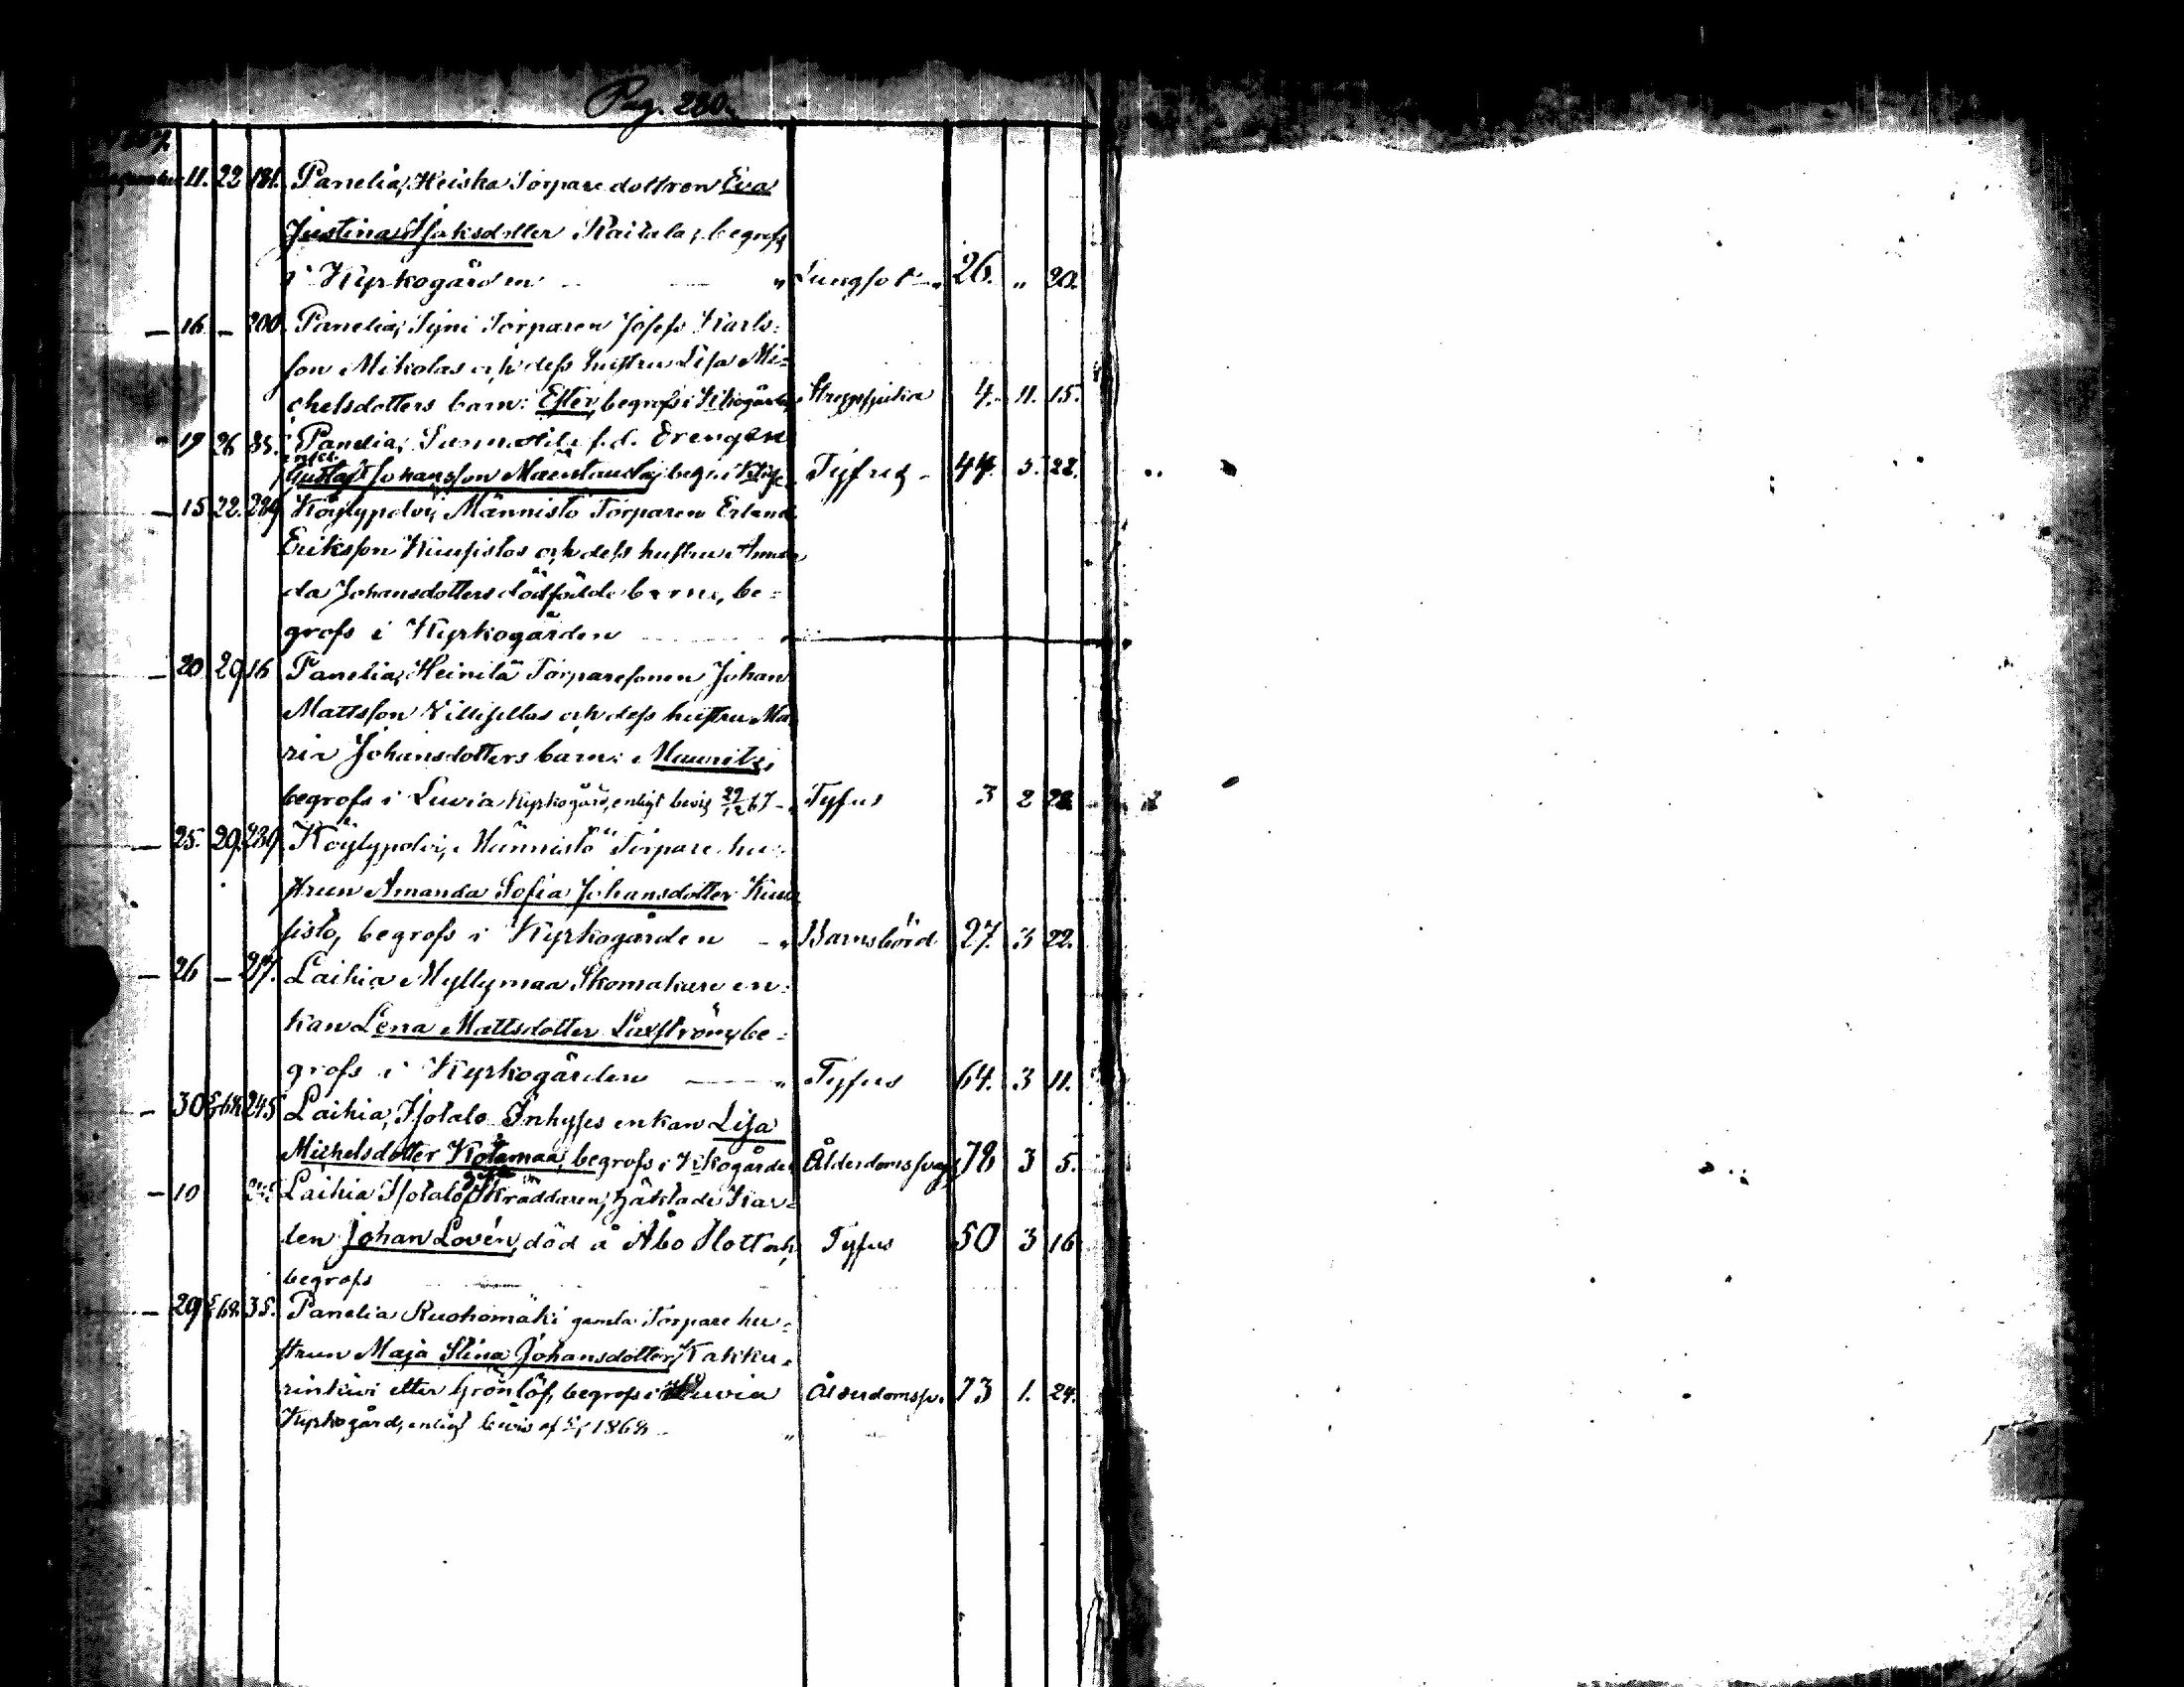 Pag. 280.
11. 22 181. Panelia, Heiska Torpare dottren Eva
Justina Isaksdotter Raitala, begrofs
i Kyrkogården " Lungsot " 26. " 20.
— 16. — 200. Panelia, Tyni Torparen Josefs Karls-
son Mikolas och dess hustru Lisa Mi-
chelsdotters barn: Ester, begrofs i Kkogården Strypsjuka 4. 11. 15.
" 19 26 35. Panelia, f.d. Drengen
Gustaf Johansson begr. i 44. 5. 22.
— 15 22. 289 Köylypolvi, Männistö Torparen Erland
Eriksson Kuusistos och dess hustru Aman
da Johansdotters dödfödde barn, be-
grofs i Kyrkogården
— 20 29 16 Panelia, Heinilä Torparesonen Johan
Mattsson och dess hustru Ma
ria Johansdotters barn: Mauritz,
begrofs i Luvia Kyrkogård, enligt bevis 29/12 67 Tyfus 3 2 28
— 25. 29. 289. Köylypolvi, Männistö Torpare hu-
strun Amanda Sofia Johansdotter Kuu
sisto, begrofs i Kyrkogården " Barnsbörd 27 3 22.
— 26 — 27. Laihia Myllymaa Skomakare en-
kan Lena Mattsdotter Laxström, be-
grofs i Kyrkogården " Tyfus 64. 3 11.
— 30 245 Laihia, Isotalo Inhyses enkan Lisa
Michelsdotter Kotamaa, begrofs i Kkogården Ålderdomssvag 78 3 5.
— 10 Laihia Isotalo Skräddaren, häktade Kar-
len Johan Lovén, död å Åbo Slott och Tyfus 50 3 16
begrofs
— 29 35. Panelia Ruohomäki gamla Torpare hu-
strun Maja Stina Johansdotter Kakku-
rinkivi eller Grönlöf, begrofs i Luvia Ålderdomsv. 73 1. 24.
Kyrkogård, enligt bevis af 1868 "